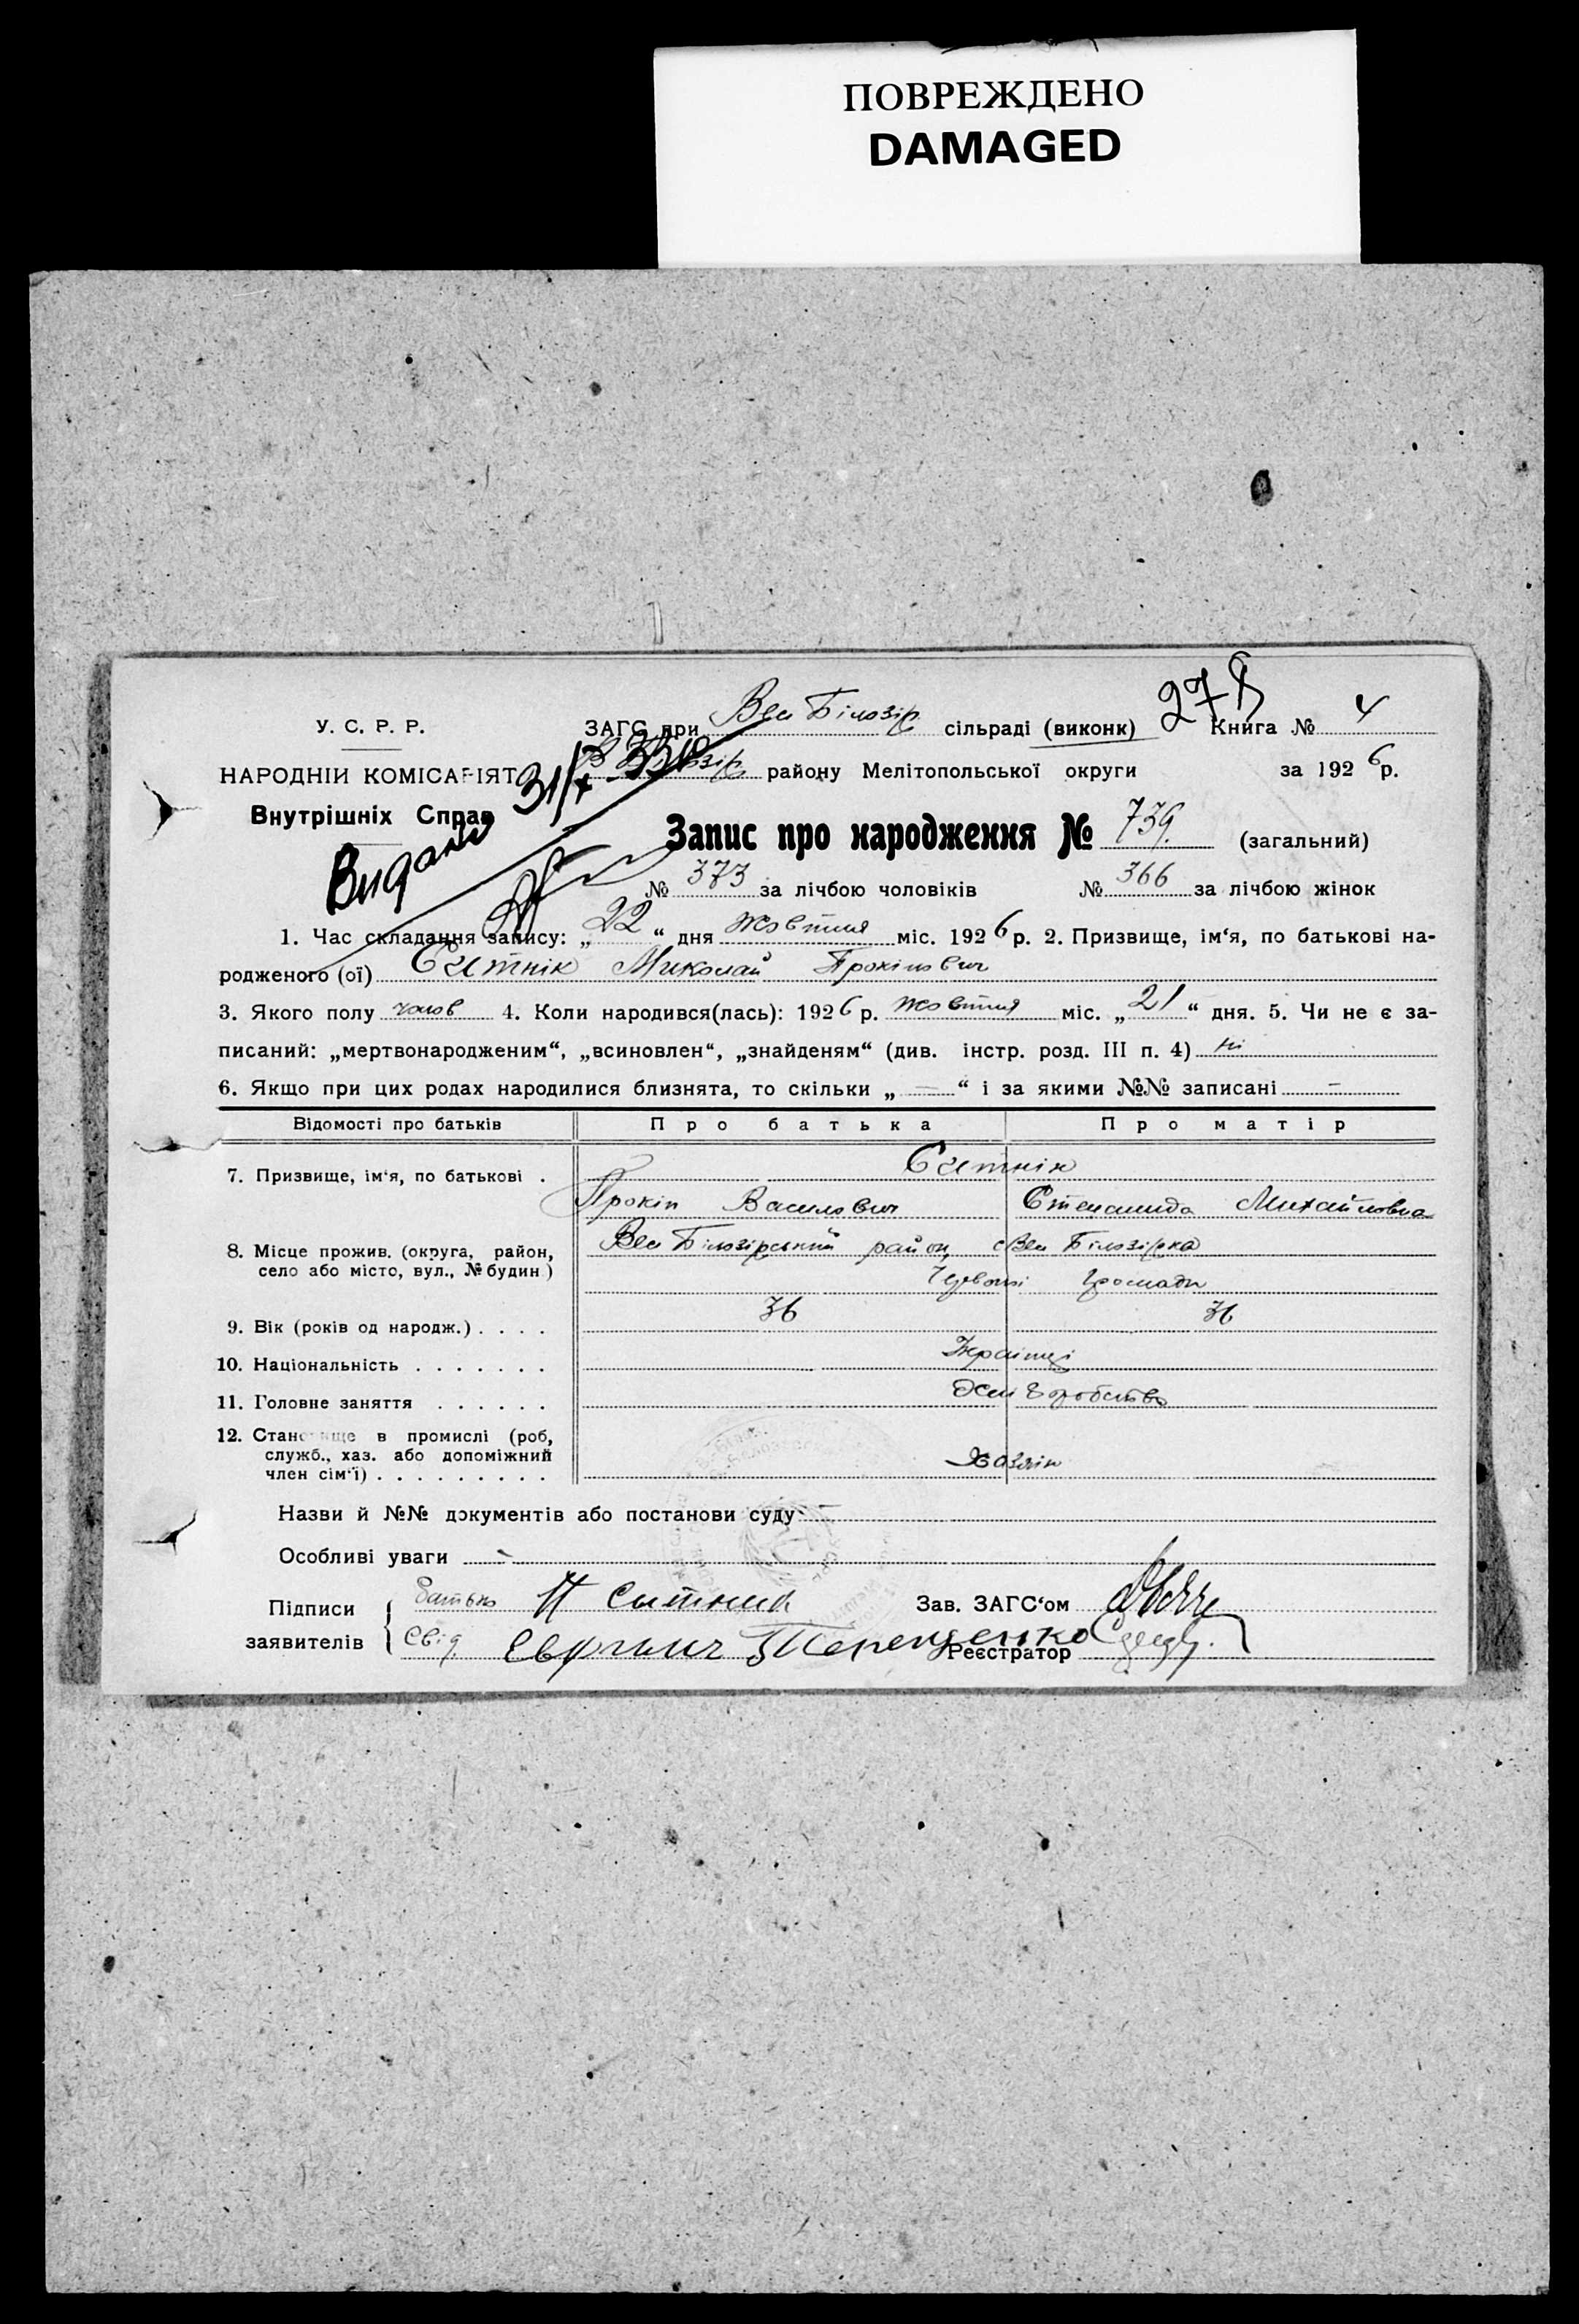 ПОВРЕЖДЕНО
DAMAGED
278
У. С. Р. Р.
ЗАГС при Вел Білозір сільраді (виконк) Книга № 4
НАРОДНІЙ КОМІСАРІЯТ
Внутрішніх Справ
В Білозір району Мелітопольської округи за 1926 р.
Видано 31/X
Запис про народження № 739. (загальний)
№ 373 за лічбою чоловіків № 366 за лічбою жінок
1. Час складання запису: „22“ дня Жовтня міс. 1926 р. 2. Призвище, ім‘я, по батькові на-
родженого (ої) Ситнік Миколай Прокіпович
3. Якого полу чолов 4. Коли народився(лась): 1926 р. Жовтня міс. „21“ дня. 5. Чи не є за-
писаний: „мертвонародженим“, „всиновлен“, „знайденям“ (див. інстр. розд. III п. 4) ні
6. Якщо при цих родах народилися близнята, то скільки „ — “ і за якими №№ записані —
Відомості про батьків Про батька Про матір
7. Призвище, ім‘я, по батькові . Ситнік
Прокіп Василович Степанида Михайловна
8. Місце прожив. (округа, район, село або місто, вул., № будин) Вел Білозірський район, с Вел Білозірка
Червоні громади
9. Вік (років од народж.) . . . . 36 36
10. Національність . . . . . . . Українці
11. Головне заняття . . . . . . Хліборобство
12. Становище в промислі (роб, служб., хаз. або допоміжний член сім‘ї) . . . . . . . . . Хазяїн
Назви й №№ документів або постанови суду —
Особливі уваги —
Підписи заявителів
Батько П Сытник
Свід.
Зав. ЗАГС‘ом
Реєстратор